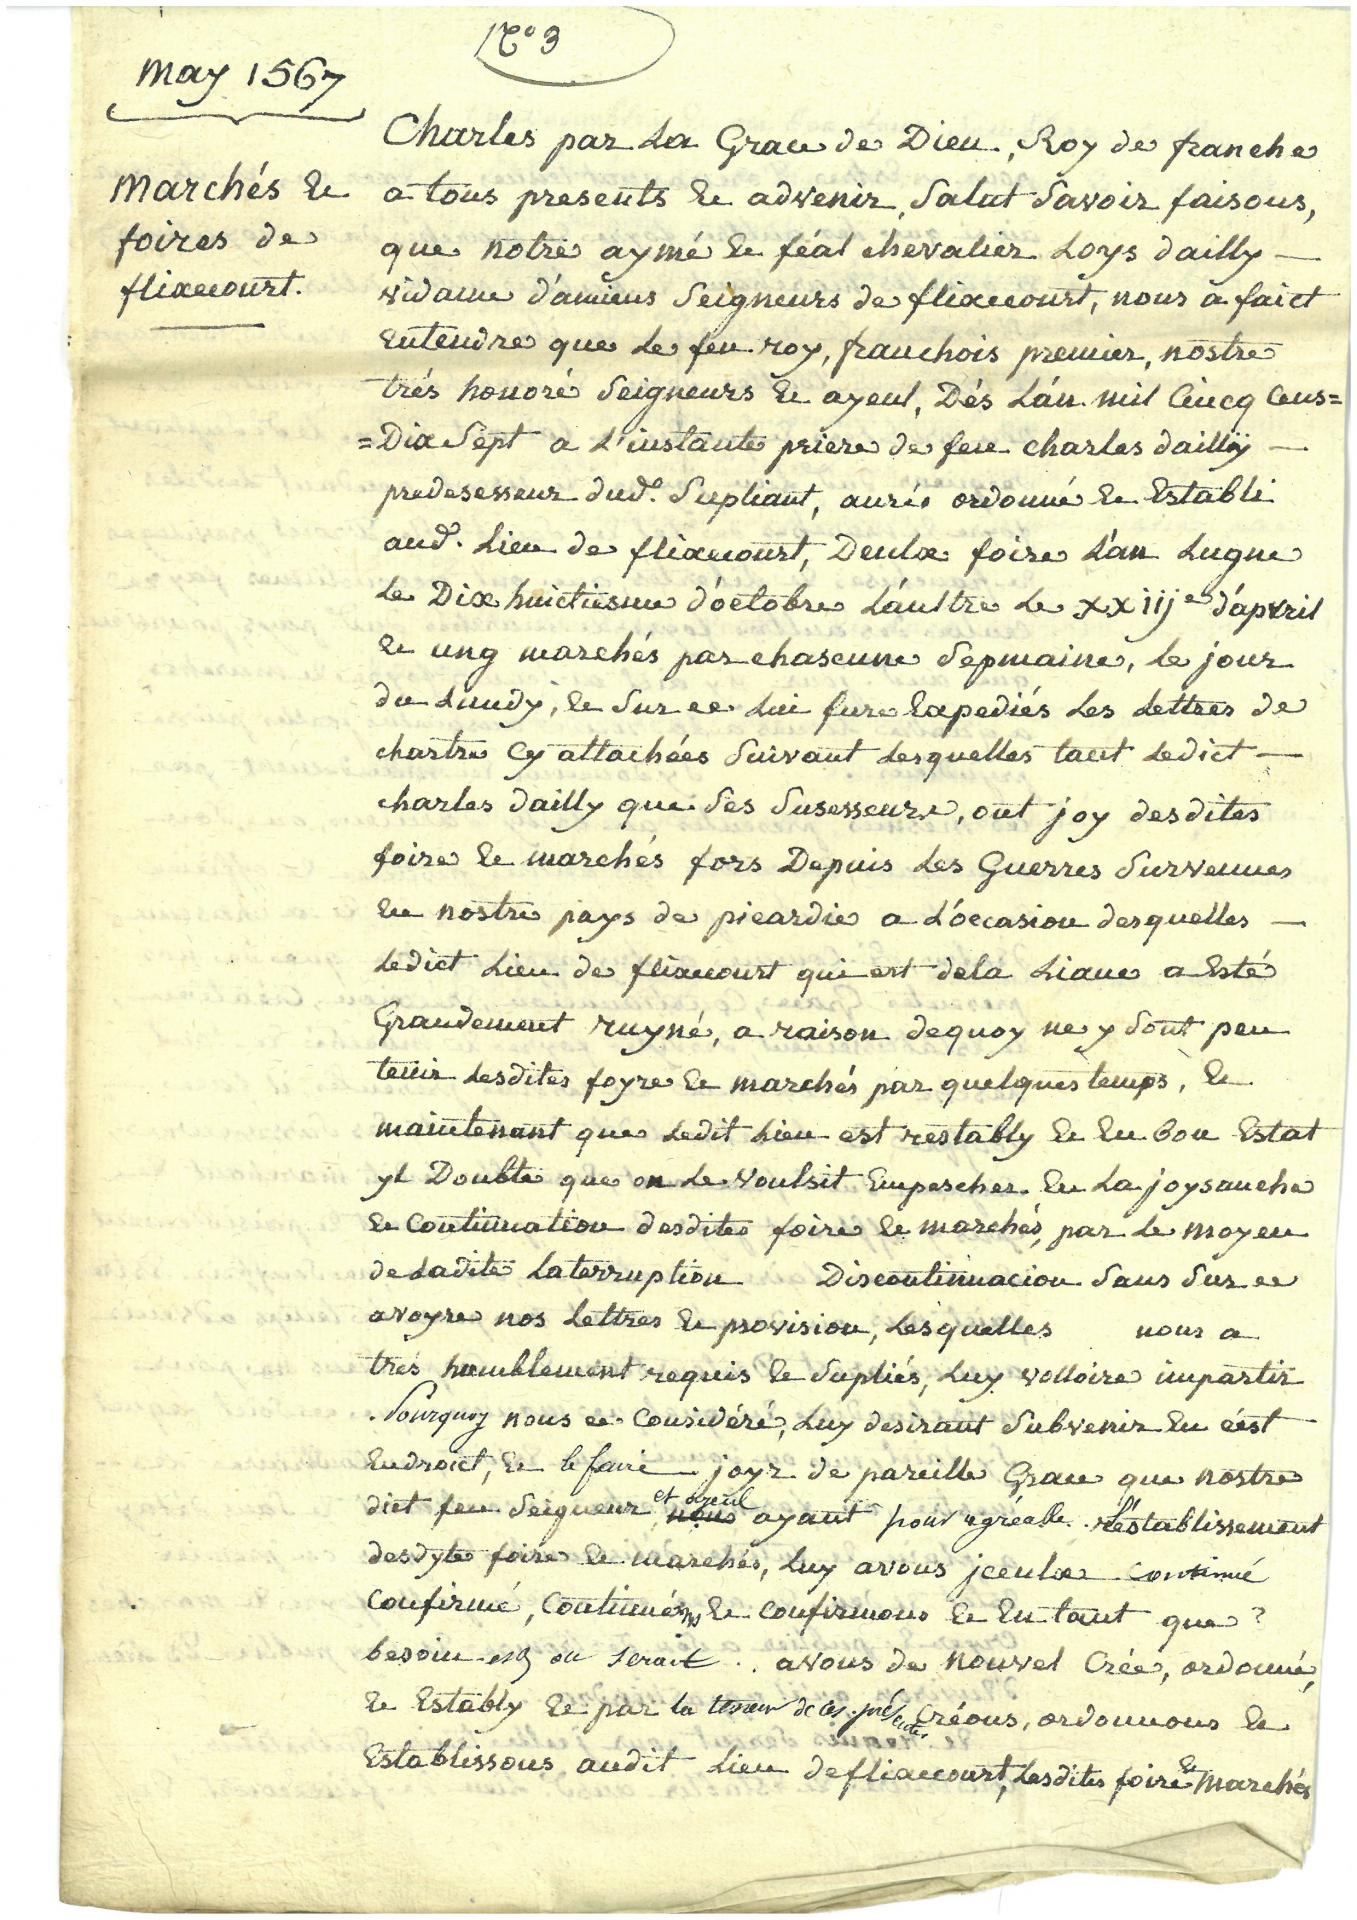 N.o 3
May 1567
Marchés &
foires de
flixecourt.
Charles par La Grace de Dieu, Roy de franche
a tous presents & advenir, Salut Savoir faisons,
que notre aymé & féal chevalier Loys dailly —
vidame d'amiens Seigneurs de flixecourt, nous a faict
Entendre que Le feu roy, franchois premier, nostre
trés honoré Seigneurs & ayeul, Dés L'án mil Cincq Cens=
=Dix Sept a L'instante priere de feu charles dailly —
predesesseur dud.t Supliant, auré ordonné & Establi
aud.t Lieu de flixecourt, Deulx foire L'an Lugne
Le Dix huictiesme d'octobre L'áultre Le xxiij.e d'apvril
& ung marchés par chascune Sepmaine, Le jour
du Lundy, & Sur ce Lui fure Expediés Les Lettres de
chartre Cy attachées Suivant Lesquelles tant Ledict —
charles dailly que Ses Susesseurs, ont joy desdites
foire & marchés fors Depuis Les Guerres Survenues
En nostre pays de picardie a L'occasion desquelles —
Ledict Lieu de flixecourt qui est dela Liaue a Esté
Grandement ruyné, a raison dequoy ne y Sont peu
tenir Lesdites foyre & marchés par quelques temps, &
maintenant que Ledit Lieu est restably & En bon Estat
yl Doubte que on Le voulsit Empescher En La joysanche
& Continuation desdites foire & marchés, par Le moyen
de Ladite Laterruption Discontinuacion Sans Sur ce
avoyre nos Lettres & provision, Lesquelles nous a
trés humblement requis & Supliés, Luy volloire impartir
. Pourquoy nous ce Considéré, Luy desirant Subvenir En cést
Endroict, & le faire joyr de pareille Grace que nostre
dict feu Seigneur et ayeul nous ayant pour agréable l'éstablissement
desdyte foire & marchés, Luy avons jceulx continué
Confirmé, Continuons & confirmons & En tant que ?
besoin est ou serait .. avons de nouvel Crée, ordonné,
& Estably & par la teneur de ces présentes Créons, ordonnons &
Establissons audit Lieu de flixecourt, Lesdites foire et Marchés